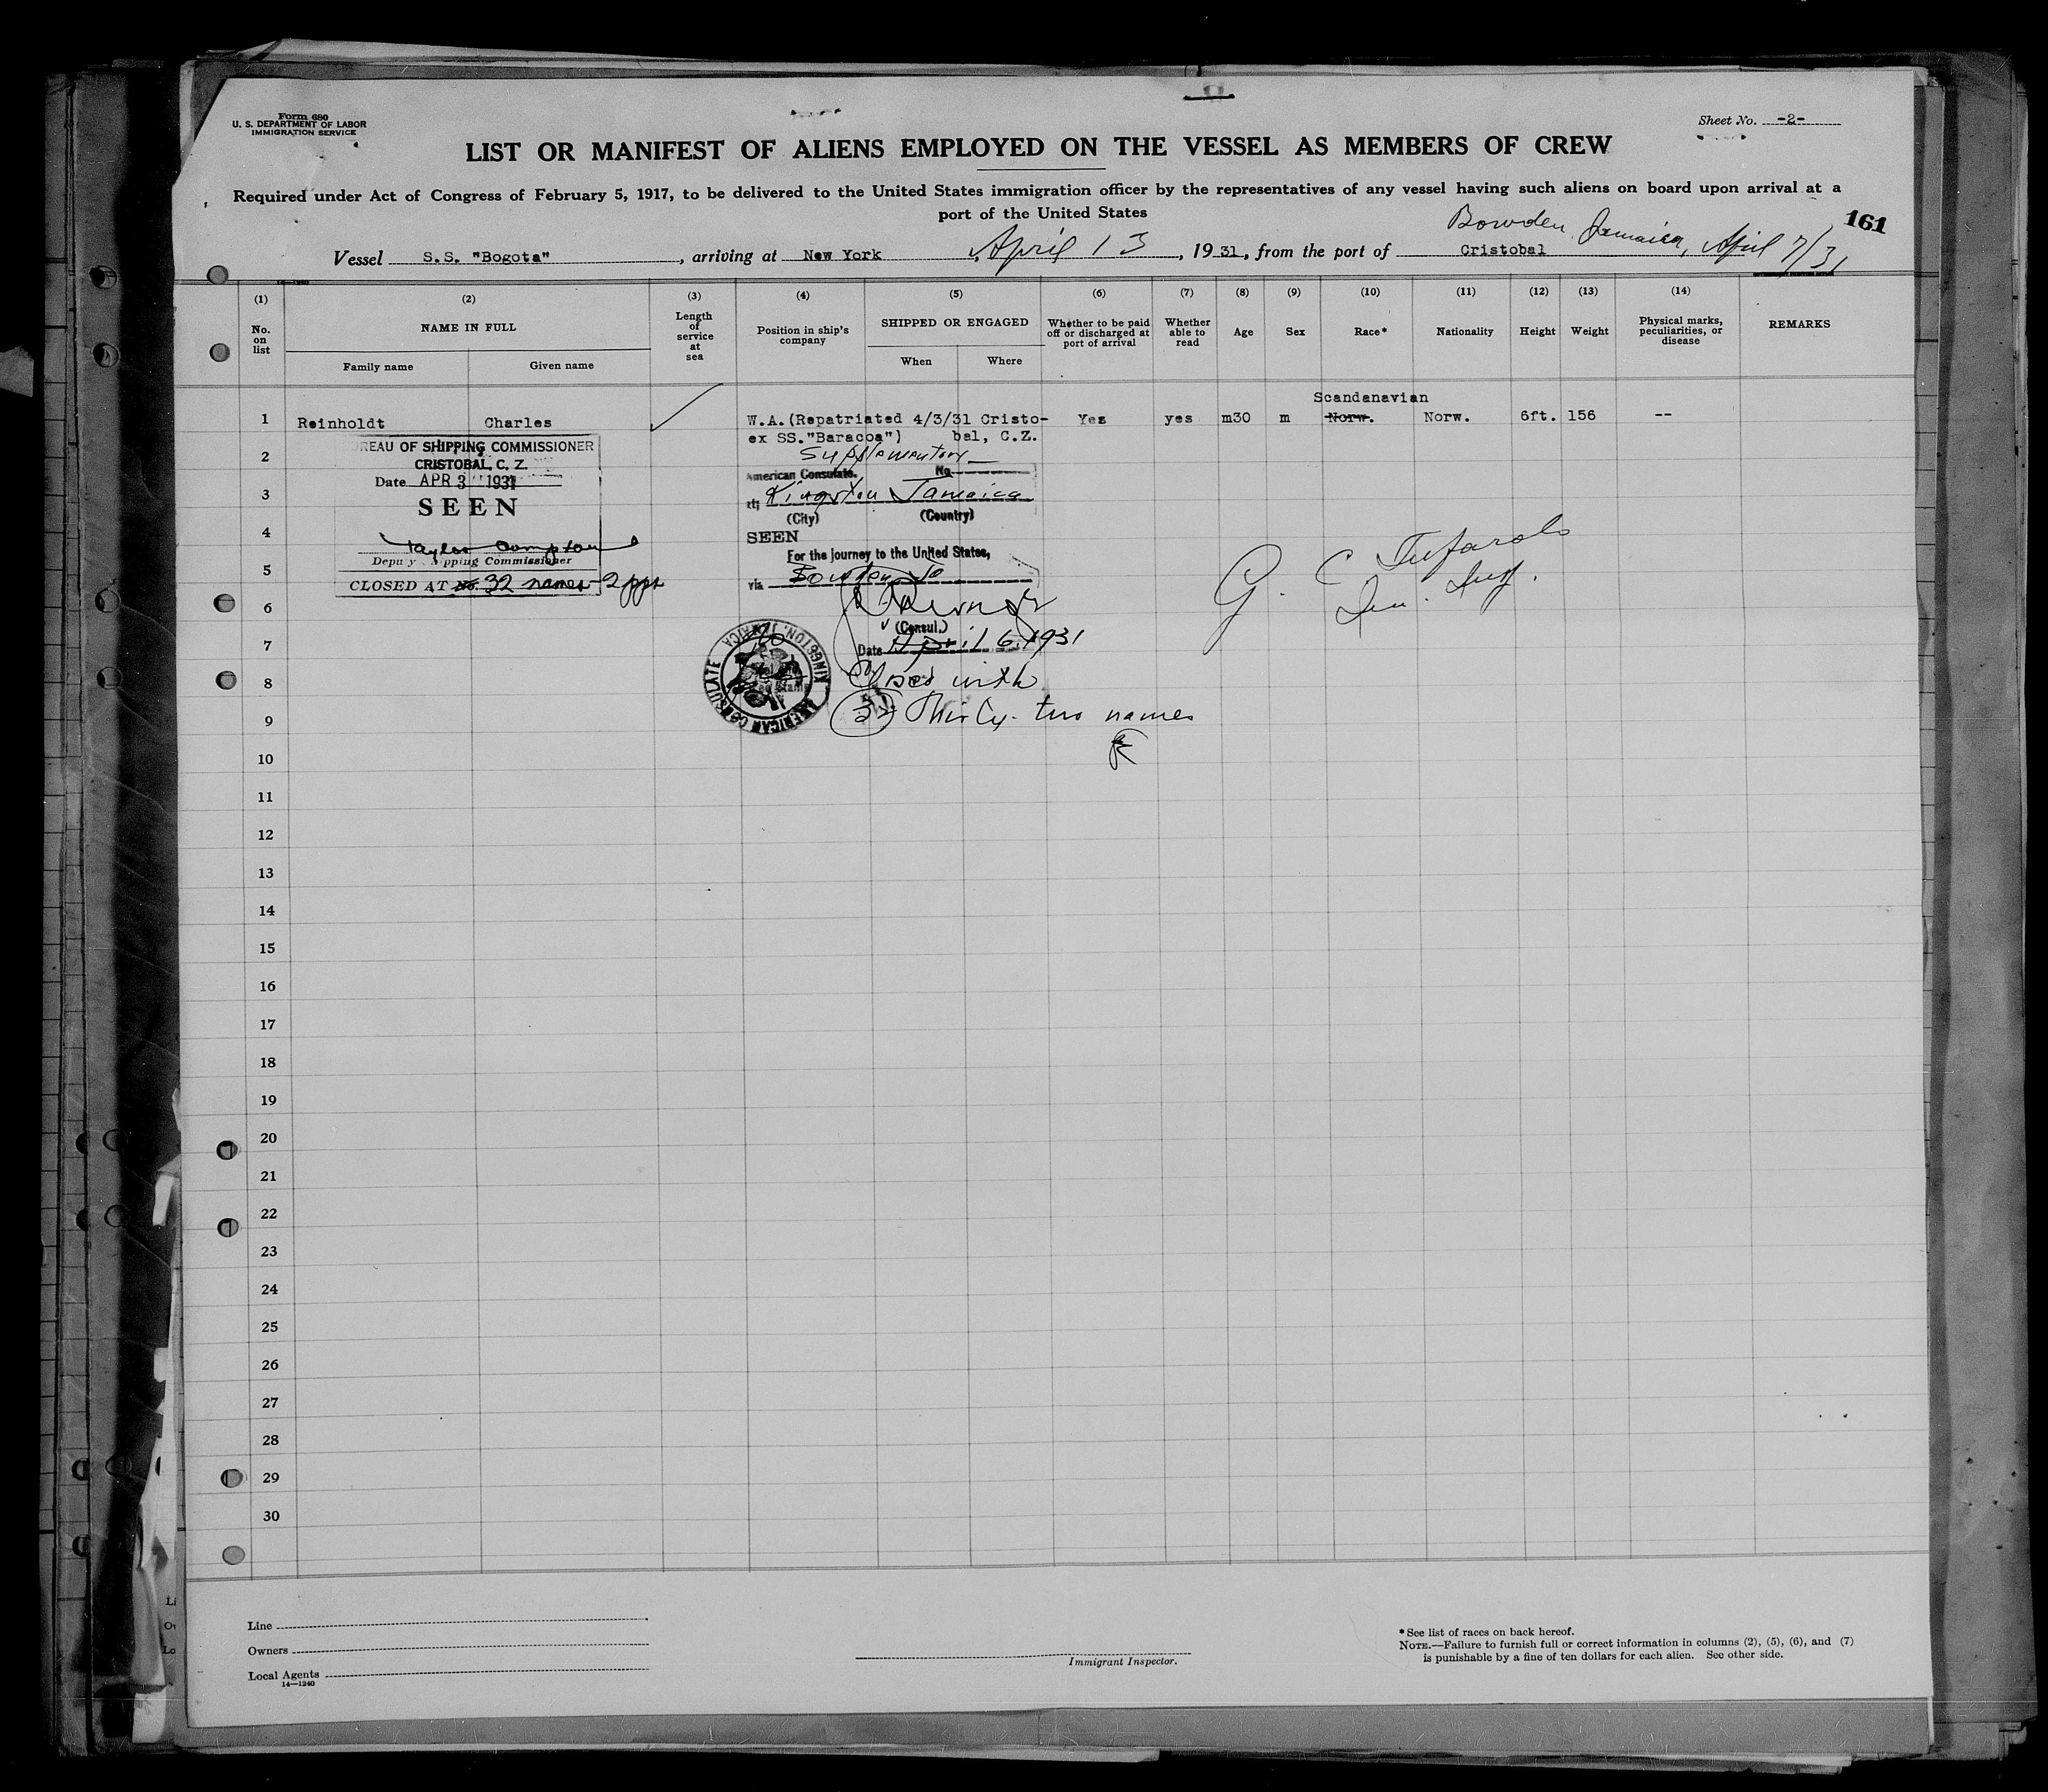 Form 680
U. S. DEPARTMENT OF LABOR
IMMIGRATION SERVICE
Sheet No. -2-
LIST OR MANIFEST OF ALIENS EMPLOYED ON THE VESSEL AS MEMBERS OF CREW
Required under Act of Congress of February 5, 1917, to be delivered to the United States immigration officer by the representatives of any vessel having such aliens on board upon arrival at a
port of the United States
161
Bowden, Jamaica, April 7/31
Vessel S.S. "Bogota", arriving at New York, April 13, 1931, from the port of Cristobal
(1) (2) (3) (4) (5) (6) (7) (8) (9) (10) (11) (12) (13) (14)
No. on list
NAME IN FULL
Family name Given name
Length of service at sea
Position in ship's company
SHIPPED OR ENGAGED
When Where
Whether to be paid off or discharged at port of arrival
Whether able to read
Age
Sex
Race*
Nationality
Height
Weight
Physical marks, peculiarities, or disease
REMARKS
Scandanavian
1 Reinholdt Charles W.A.(Repatriated 4/3/31 Cristo- Yes yes m30 m Norw. Norw. 6ft. 156 --
ex SS."Baracoa") bal, C.Z.
REAU OF SHIPPING COMMISSIONER
CRISTOBAL, C. Z.
Date APR 3 1931
SEEN
Taylor Compton
Deputy Shipping Commissioner
CLOSED AT No. 32 names - 2 pps
Supplementary
American Consulate. No
at; Kingston Jamaica
(City) (Country)
SEEN
For the journey to the United States,
via Bowden, Ja
(Consul.)
Date April 6, 1931
AMERICAN CONSULATE KINGSTON, JAMAICA
Closed with
(32) Thirty-two names
G. C. Tufarolo
Imm. Insp.
2
3
4
5
6
7
8
9
10
11
12
13
14
15
16
17
18
19
20
21
22
23
24
25
26
27
28
29
30
Line
Owners
Local Agents
14—1240
Immigrant Inspector.
*See list of races on back hereof.
NOTE.—Failure to furnish full or correct information in columns (2), (5), (6), and (7)
is punishable by a fine of ten dollars for each alien. See other side.